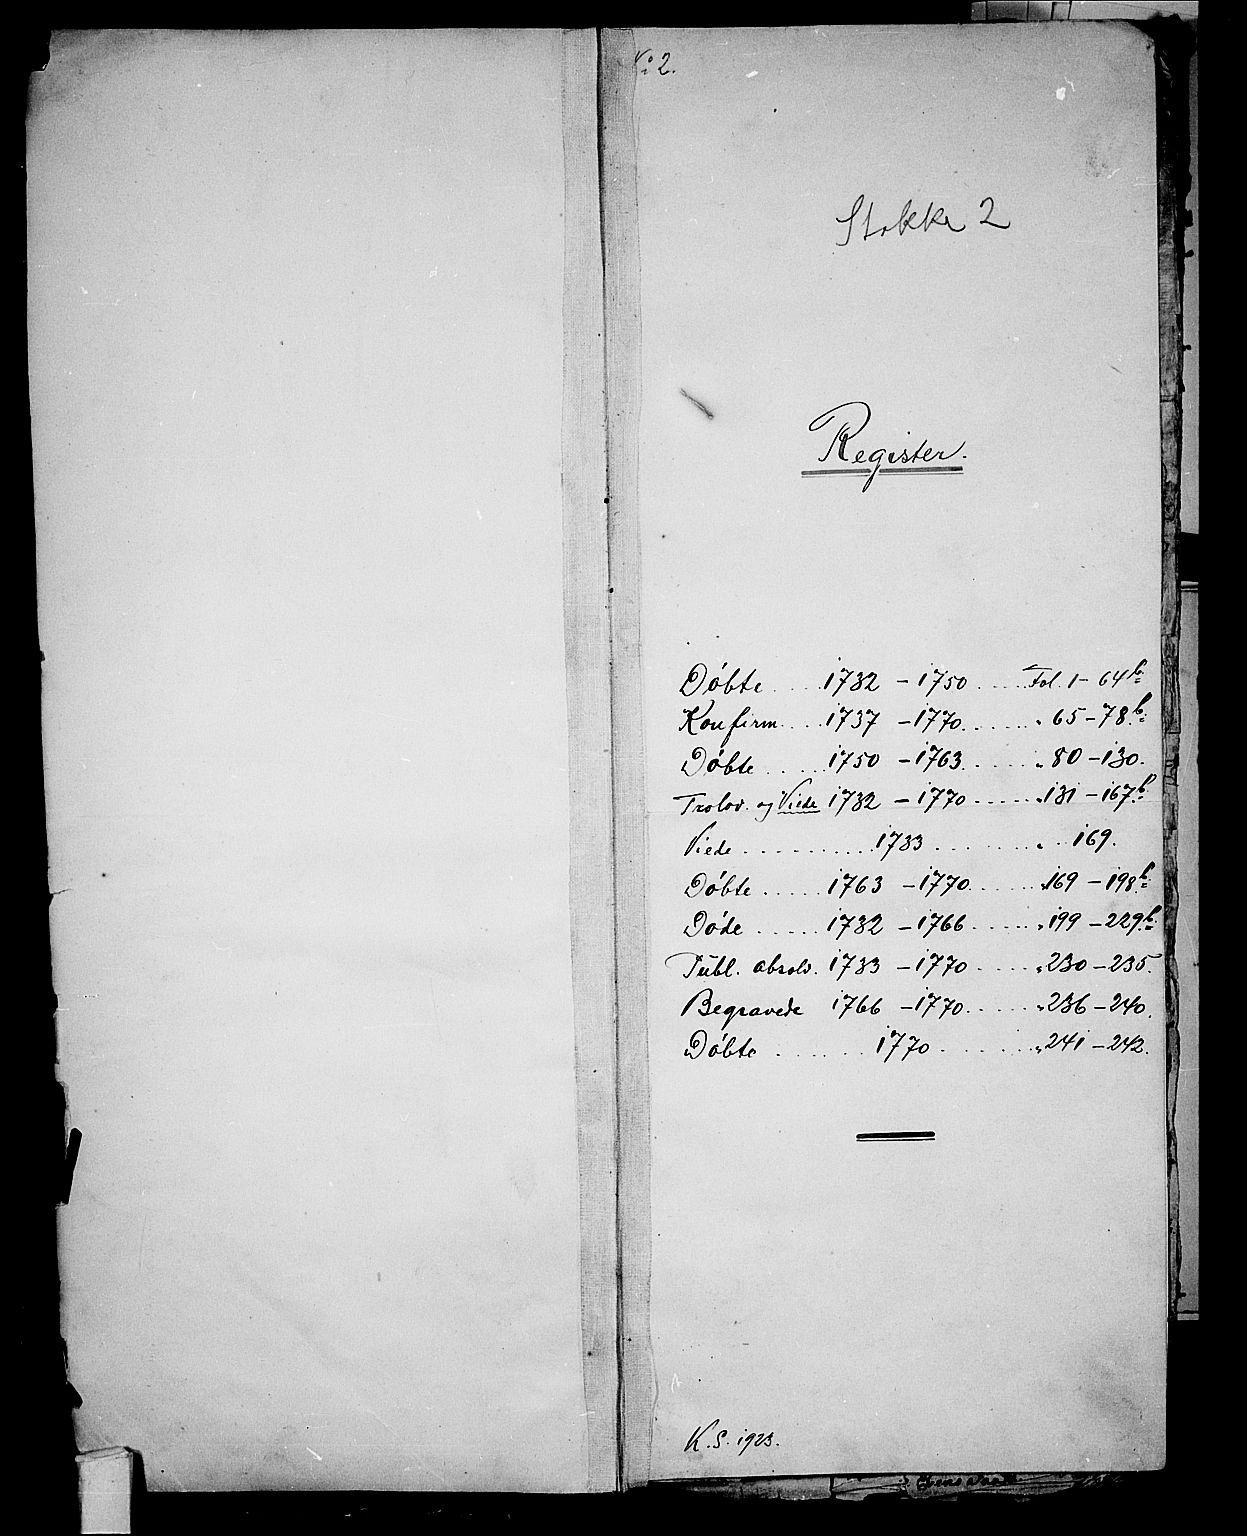 No 2.
Stokke 2
Register.
Döbte .... 1732 - 1750 ..... Fol. 1 - 64b.
Konfirm .... 1737 - 1770 ...... " 65 - 78b.
Döbte ..... 1750 - 1763 ...... " 80 - 130.
Trolov. og Viede 1732 - 1770 ...... " 131 - 167b.
Viede .......... 1733 ........ " .. 169.
Döbte ..... 1763 - 1770 ..... " 169 - 198b.
Döde ..... 1732 - 1766 ..... " 199 - 229b.
Publ. absolv. 1733 - 1770 ..... " 230 - 235.
Begravede 1766 - 1770 ..... " 236 - 240.
Döbte ....... 1770 ........ " 241 - 242.
K.S. 1923.